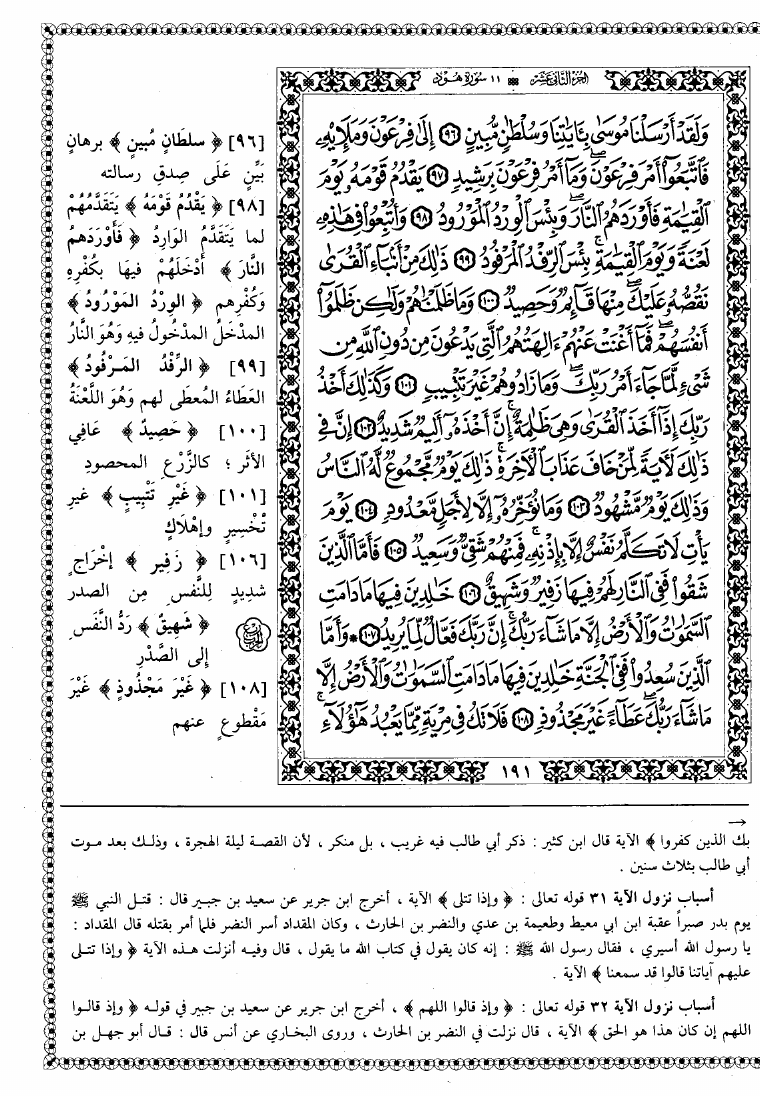 الجزء الثاني عشر ١١ سورة هود
وَلَقَدْ أَرْسَلْنَا مُوسَىٰ بِـَٔايَٰتِنَا وَسُلْطَٰنٍ مُّبِينٍ ٩٦ إِلَىٰ فِرْعَوْنَ وَمَلَإِي۟هِۦ
فَٱتَّبَعُوٓا۟ أَمْرَ فِرْعَوْنَ ۖ وَمَآ أَمْرُ فِرْعَوْنَ بِرَشِيدٍ ٩٧ يَقْدُمُ قَوْمَهُۥ يَوْمَ
ٱلْقِيَٰمَةِ فَأَوْرَدَهُمُ ٱلنَّارَ ۖ وَبِئْسَ ٱلْوِرْدُ ٱلْمَوْرُودُ ٩٨ وَأُتْبِعُوا۟ فِى هَٰذِهِۦ
لَعْنَةً وَيَوْمَ ٱلْقِيَٰمَةِ ۚ بِئْسَ ٱلرِّفْدُ ٱلْمَرْفُودُ ٩٩ ذَٰلِكَ مِنْ أَنۢبَآءِ ٱلْقُرَىٰ
نَقُصُّهُۥ عَلَيْكَ ۖ مِنْهَا قَآئِمٌ وَحَصِيدٌ ١٠٠ وَمَا ظَلَمْنَٰهُمْ وَلَٰكِن ظَلَمُوٓا۟
أَنفُسَهُمْ ۖ فَمَآ أَغْنَتْ عَنْهُمْ ءَالِهَتُهُمُ ٱلَّتِى يَدْعُونَ مِن دُونِ ٱللَّهِ مِن
شَىْءٍ لَّمَّا جَآءَ أَمْرُ رَبِّكَ ۖ وَمَا زَادُوهُمْ غَيْرَ تَتْبِيبٍ ١٠١ وَكَذَٰلِكَ أَخْذُ
رَبِّكَ إِذَآ أَخَذَ ٱلْقُرَىٰ وَهِىَ ظَٰلِمَةٌ ۚ إِنَّ أَخْذَهُۥٓ أَلِيمٌ شَدِيدٌ ١٠٢ إِنَّ فِى
ذَٰلِكَ لَـَٔايَةً لِّمَنْ خَافَ عَذَابَ ٱلْـَٔاخِرَةِ ۚ ذَٰلِكَ يَوْمٌ مَّجْمُوعٌ لَّهُ ٱلنَّاسُ
وَذَٰلِكَ يَوْمٌ مَّشْهُودٌ ١٠٣ وَمَا نُؤَخِّرُهُۥٓ إِلَّا لِأَجَلٍ مَّعْدُودٍ ١٠٤ يَوْمَ
يَأْتِ لَا تَكَلَّمُ نَفْسٌ إِلَّا بِإِذْنِهِۦ ۚ فَمِنْهُمْ شَقِىٌّ وَسَعِيدٌ ١٠٥ فَأَمَّا ٱلَّذِينَ
شَقُوا۟ فَفِى ٱلنَّارِ لَهُمْ فِيهَا زَفِيرٌ وَشَهِيقٌ ١٠٦ خَٰلِدِينَ فِيهَا مَا دَامَتِ
ٱلسَّمَٰوَٰتُ وَٱلْأَرْضُ إِلَّا مَا شَآءَ رَبُّكَ ۚ إِنَّ رَبَّكَ فَعَّالٌ لِّمَا يُرِيدُ ١٠٧ ۞ وَأَمَّا
ٱلَّذِينَ سُعِدُوا۟ فَفِى ٱلْجَنَّةِ خَٰلِدِينَ فِيهَا مَا دَامَتِ ٱلسَّمَٰوَٰتُ وَٱلْأَرْضُ إِلَّا
مَا شَآءَ رَبُّكَ ۖ عَطَآءً غَيْرَ مَجْذُوذٍ ١٠٨ فَلَا تَكُ فِى مِرْيَةٍ مِّمَّا يَعْبُدُ هَٰٓؤُلَآءِ ۚ
١٩١
[٩٦] ﴿ سلطانٍ مُبينٍ ﴾ برهانٍ
بَيِّنٍ عَلَى صِدقِ رسالته
[٩٨] ﴿ يَقْدُمُ قَوْمَهُ ﴾ يَتَقَدَّمُهُمْ
لما يَتَقَدَّمُ الوَارِدُ ﴿ فَأَوْرَدَهمُ
النَّارَ ﴾ أَدْخَلَهُمْ فيهَا بِكُفْرِهِ
وَكُفْرِهم ﴿ الوِرْدُ المَوْرُودُ ﴾
المدْخَلُ المدْخُولُ فيه وَهُوَ النَّارُ
[٩٩] ﴿ الرِّفْدُ المَرْفُودُ ﴾
العَطَاءُ المُعطَى لهم وَهُوَ اللَّعْنَةُ
[١٠٠] ﴿ حَصِيدٌ ﴾ عَافِي
الأثَر ؛ كالزَّرْعِ المحصودِ
[١٠١] ﴿ غَيْرَ تَتْبِيبٍ ﴾ غير
تْخْسِيرٍ وإهْلاَكٍ
[١٠٦] ﴿ زَفِير ﴾ إخْرَاجٍ
شديدٍ لِلنَّفسِ مِن الصدر
﴿ شَهِيقٌ ﴾ رَدُّ النَّفَسِ
إلى الصَّدْرِ
[١٠٨] ﴿ غَيْرَ مَجْذُوذٍ ﴾ غَيْرَ
مَقْطوعٍ عنهم
→
بك الذين كفروا ﴾ الآية قال ابن كثير : ذكر أبي طالب فيه غريب ، بل منكر ، لأن القصة ليلة الهجرة ، وذلك بعد موت
أبي طالب بثلاث سنين .
أسباب نزول الآية ٣١ قوله تعالى : ﴿ وإذا تتلى ﴾ الآية ، أخرج ابن جرير عن سعيد بن جبير قال : قتل النبي ﷺ
يوم بدر صبراً عقبة ابن ابي معيط وطعيمة بن عدي والنضر بن الحارث ، وكان المقداد أسر النضر فلما أمر بقتله قال المقداد :
يا رسول الله أسيري ، فقال رسول الله ﷺ : إنه كان يقول في كتاب الله ما يقول ، قال وفيه أنزلت هذه الآية ﴿ وإذا تتلى
عليهم آياتنا قالوا قد سمعنا ﴾ الآية .
أسباب نزول الآية ٣٢ قوله تعالى : ﴿ وإذ قالوا اللهم ﴾ ، أخرج ابن جرير عن سعيد بن جبير في قوله ﴿ وإذ قالوا
اللهم إن كان هذا هو الحق ﴾ الآية ، قال نزلت في النضر بن الحارث ، وروى البخاري عن أنس قال : قال أبو جهل بن